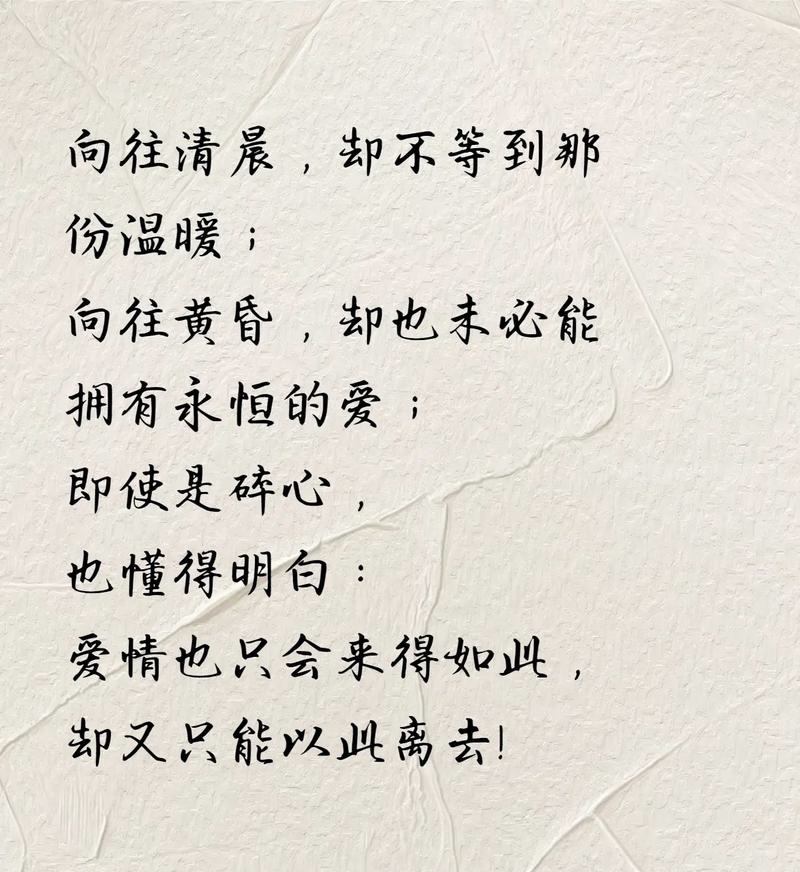 向往清晨，却不等到那
份温暖；
向往黄昏，却也未必能
拥有永恒的爱；
即使是碎心，
也懂得明白：
爱情也只会来得如此，
却又只能以此离去！